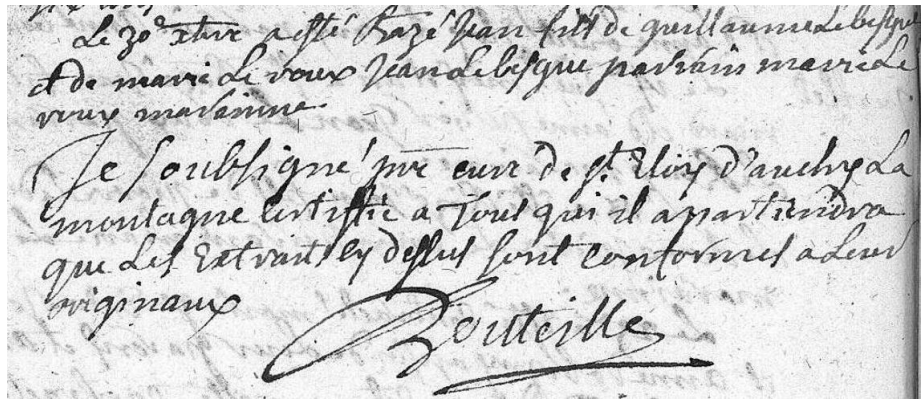 Le 30e xbre a esté bazé jean fils de guillaume Lebesgue
et de marie Le roux jean Lebesgue parrain marie Le
roux maraine
Je Soubsigné pre curé de st. Eloy d'auchy La
montagne certiffie a Tous qui il apartiendra
que Les Extraits cy dessus sont conformes a Leur
originaux
Bouteille